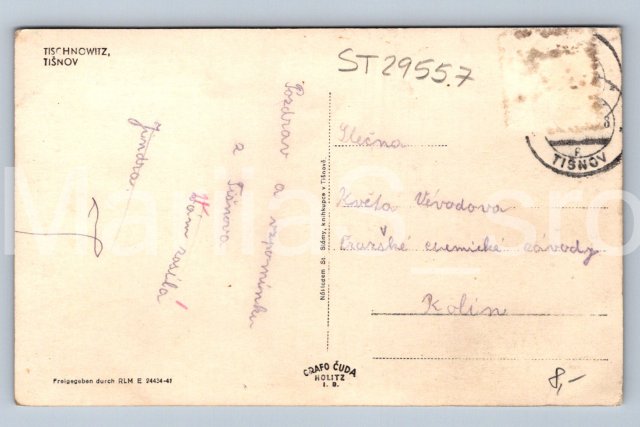 TISCHNOWITZ,
TIŠNOV
ST29557
Pozdrav a vzpomínku
z Tišnova
Vám zasílá
Jindra.
Nákladem St. Slámy, knihkupce v Tišnově.
Slečna
Květa Vévodova
Pražské cemické závody
Kolín
TIŠNOV
GRAFO ČUDA
HOLITZ
I. B.
Freigegeben durch RLM E 24434-41
8,-